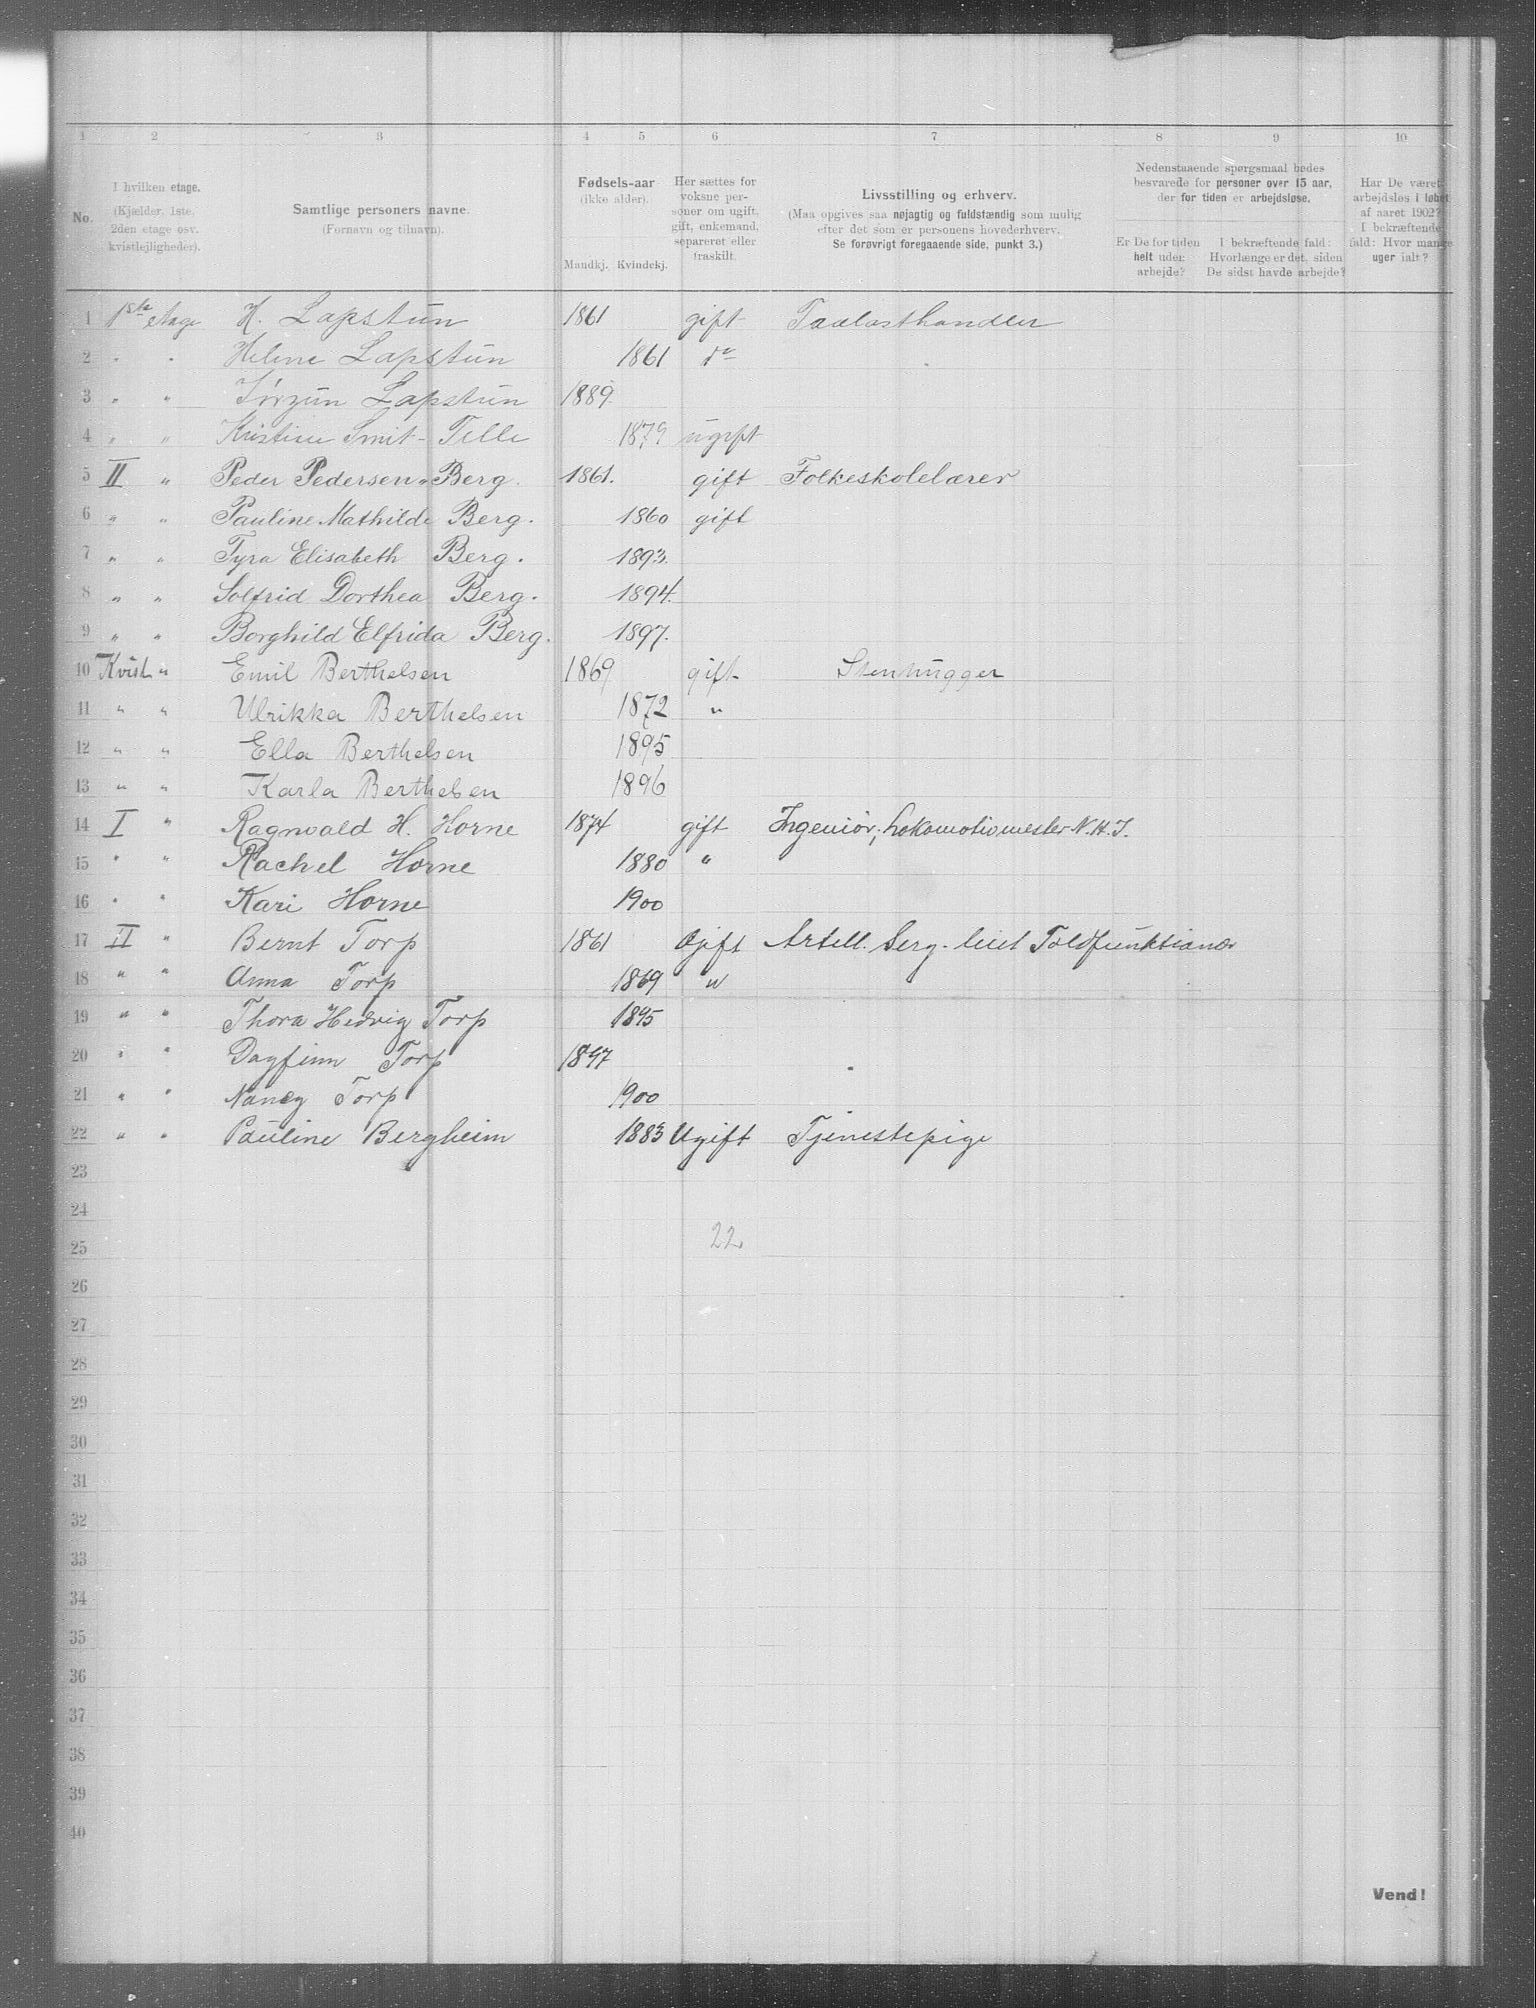 1 2 3 4 5 6 7 8 9 10
No.
I hvilken etage.
(Kjælder, 1ste, 2den etage osv. kvistlejligheder).
Samtlige personers navne.
(Fornavn og tilnavn).
Fødsels-aar
(ikke alder).
Mandkj. Kvindekj.
Her sættes for voksne personer om ugift, gift, enkemand, separeret eller fraskilt.
Livsstilling og erhverv.
(Maa opgives saa nøjagtig og fuldstændig som mulig efter det som er personens hovederhverv.
Se forøvrigt foregaaende side, punkt 3.)
Nedenstaaende spørgsmaal bedes besvarede for personer over 15 aar, der for tiden er arbejdsløse.
Er De for tiden helt uden arbejde?
I bekræftende fald: Hvorlænge er det, siden De sidst havde arbejde?
Har De været arbejdsløs i løbet af aaret 1902? I bekræftende fald: Hvor mange uger ialt?
1 1ste etage H. Lapstun 1861 gift
2 " " Helene Lapstun 1861 do
3 " " Jørgun Lapstun 1889
4 " " Kristine Smit-Telle 1879 ugift
5 II " Peder Pedersen-Berg. 1861. gift Folkeskolelærer
6 " " Pauline Mathilde Berg. 1860 gift
7 " " Tyra Elisabeth Berg. 1893.
8 " " Solfrid Dorthea Berg. 1894.
9 " " Borghild Elfrida Berg. 1897.
10 Kvist " Emil Berthelsen 1869 gift Stenhugger
11 " " Ulrikka Berthelsen 1872 "
12 " " Ella Berthelsen 1895
13 " " Karla Berthelsen 1896
14 I " Ragnvald H. Horne 1874 gift Ingeniør, Lokomotivmester N.H.J.
15 " " Rachel Horne 1880 "
16 " " Kari Horne 1900
17 II " Bernt Torp 1861 gift Artell. Serg. Toldfunktionær
18 " " Anna Torp 1869 "
19 " " Thora Hedvig Torp 1895
20 " " Dagfinn Torp 1897
21 " " Nancy Torp 1900
22 " " Pauline Bergheim 1883 Ugift Tjenestepige
23
24
25 22
26
27
28
29
30
31
32
33
34
35
36
37
38
39
40
Vend!